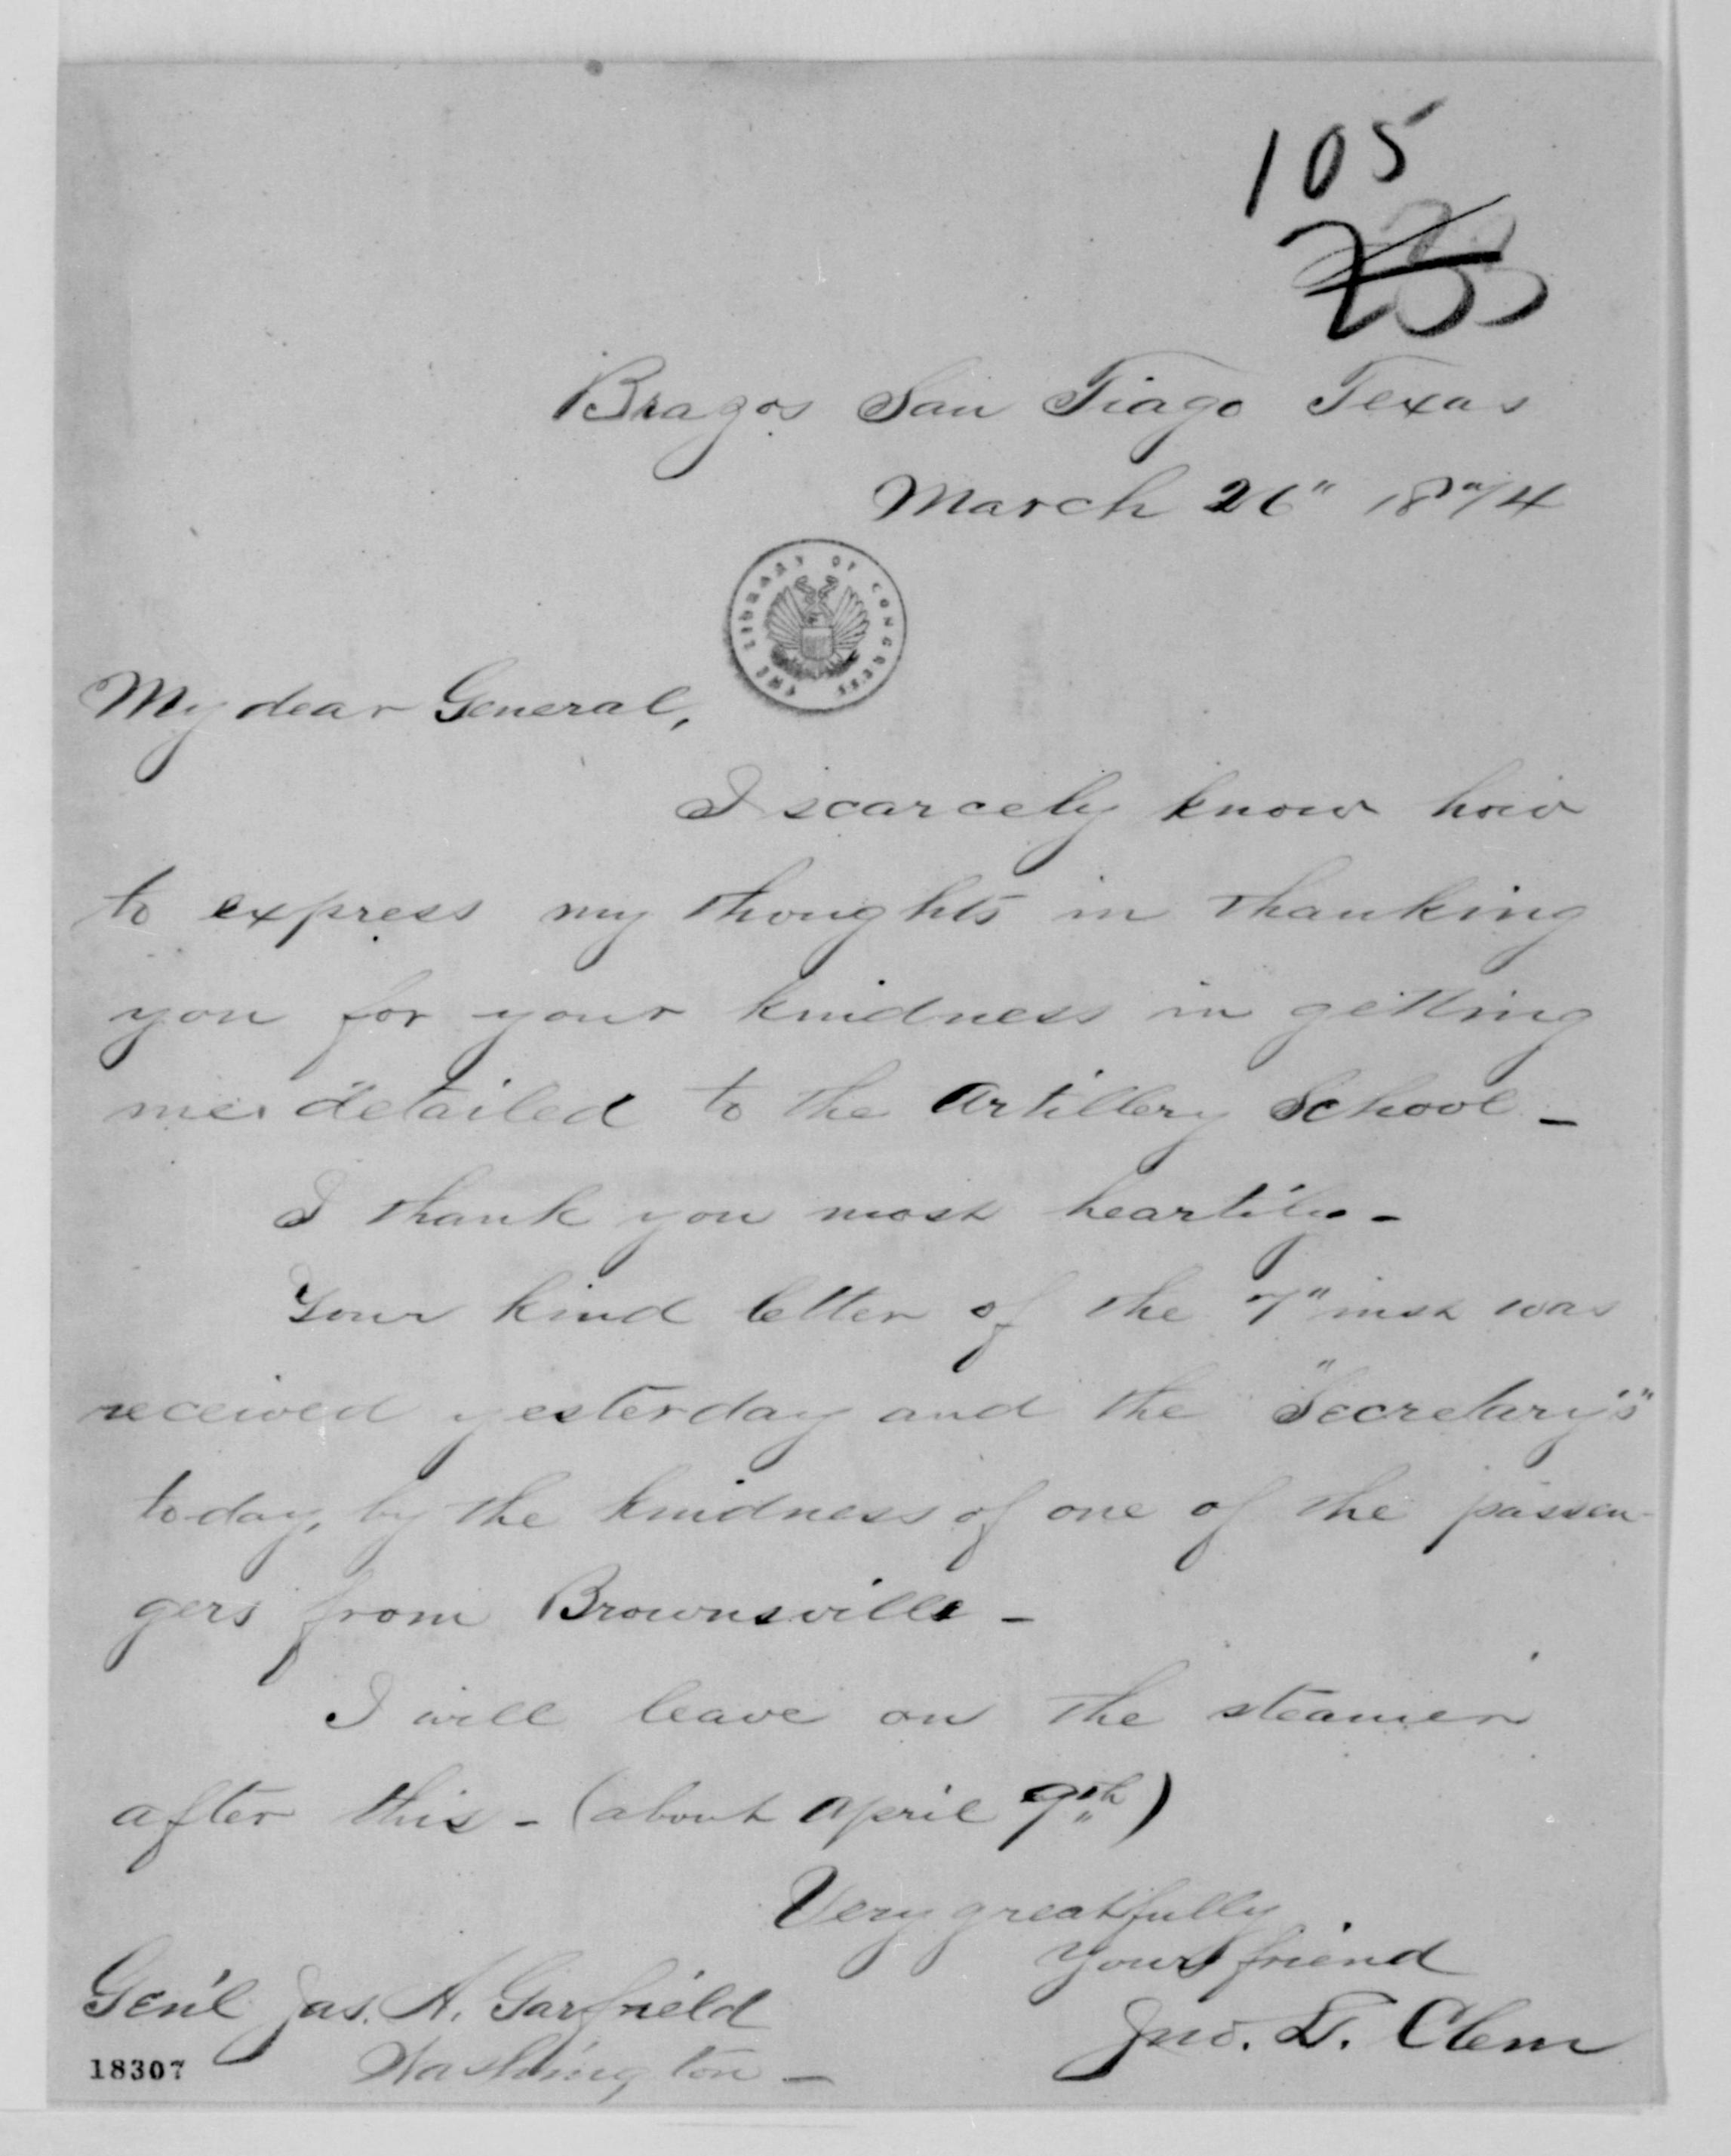 105
Brazos San Tiago Texas
March 26" 1874
THE LIBRARY OF CONGRESS
My dear General,
I scarcely know how
to express my thoughts in thanking
you for your kindness in getting
me detailed to the Artillery School -
I thank you most heartily -
Your kind letter of the 7" inst was
received yesterday and the "Secretary's"
today, by the kindness of one of the passen-
gers from Brownsville -
I will leave on the steamer
after this - (about April 9th)
Very greatfully
Your friend
Jno. L. Clem
Gen'l Jas. A. Garfield
Washington -
18307